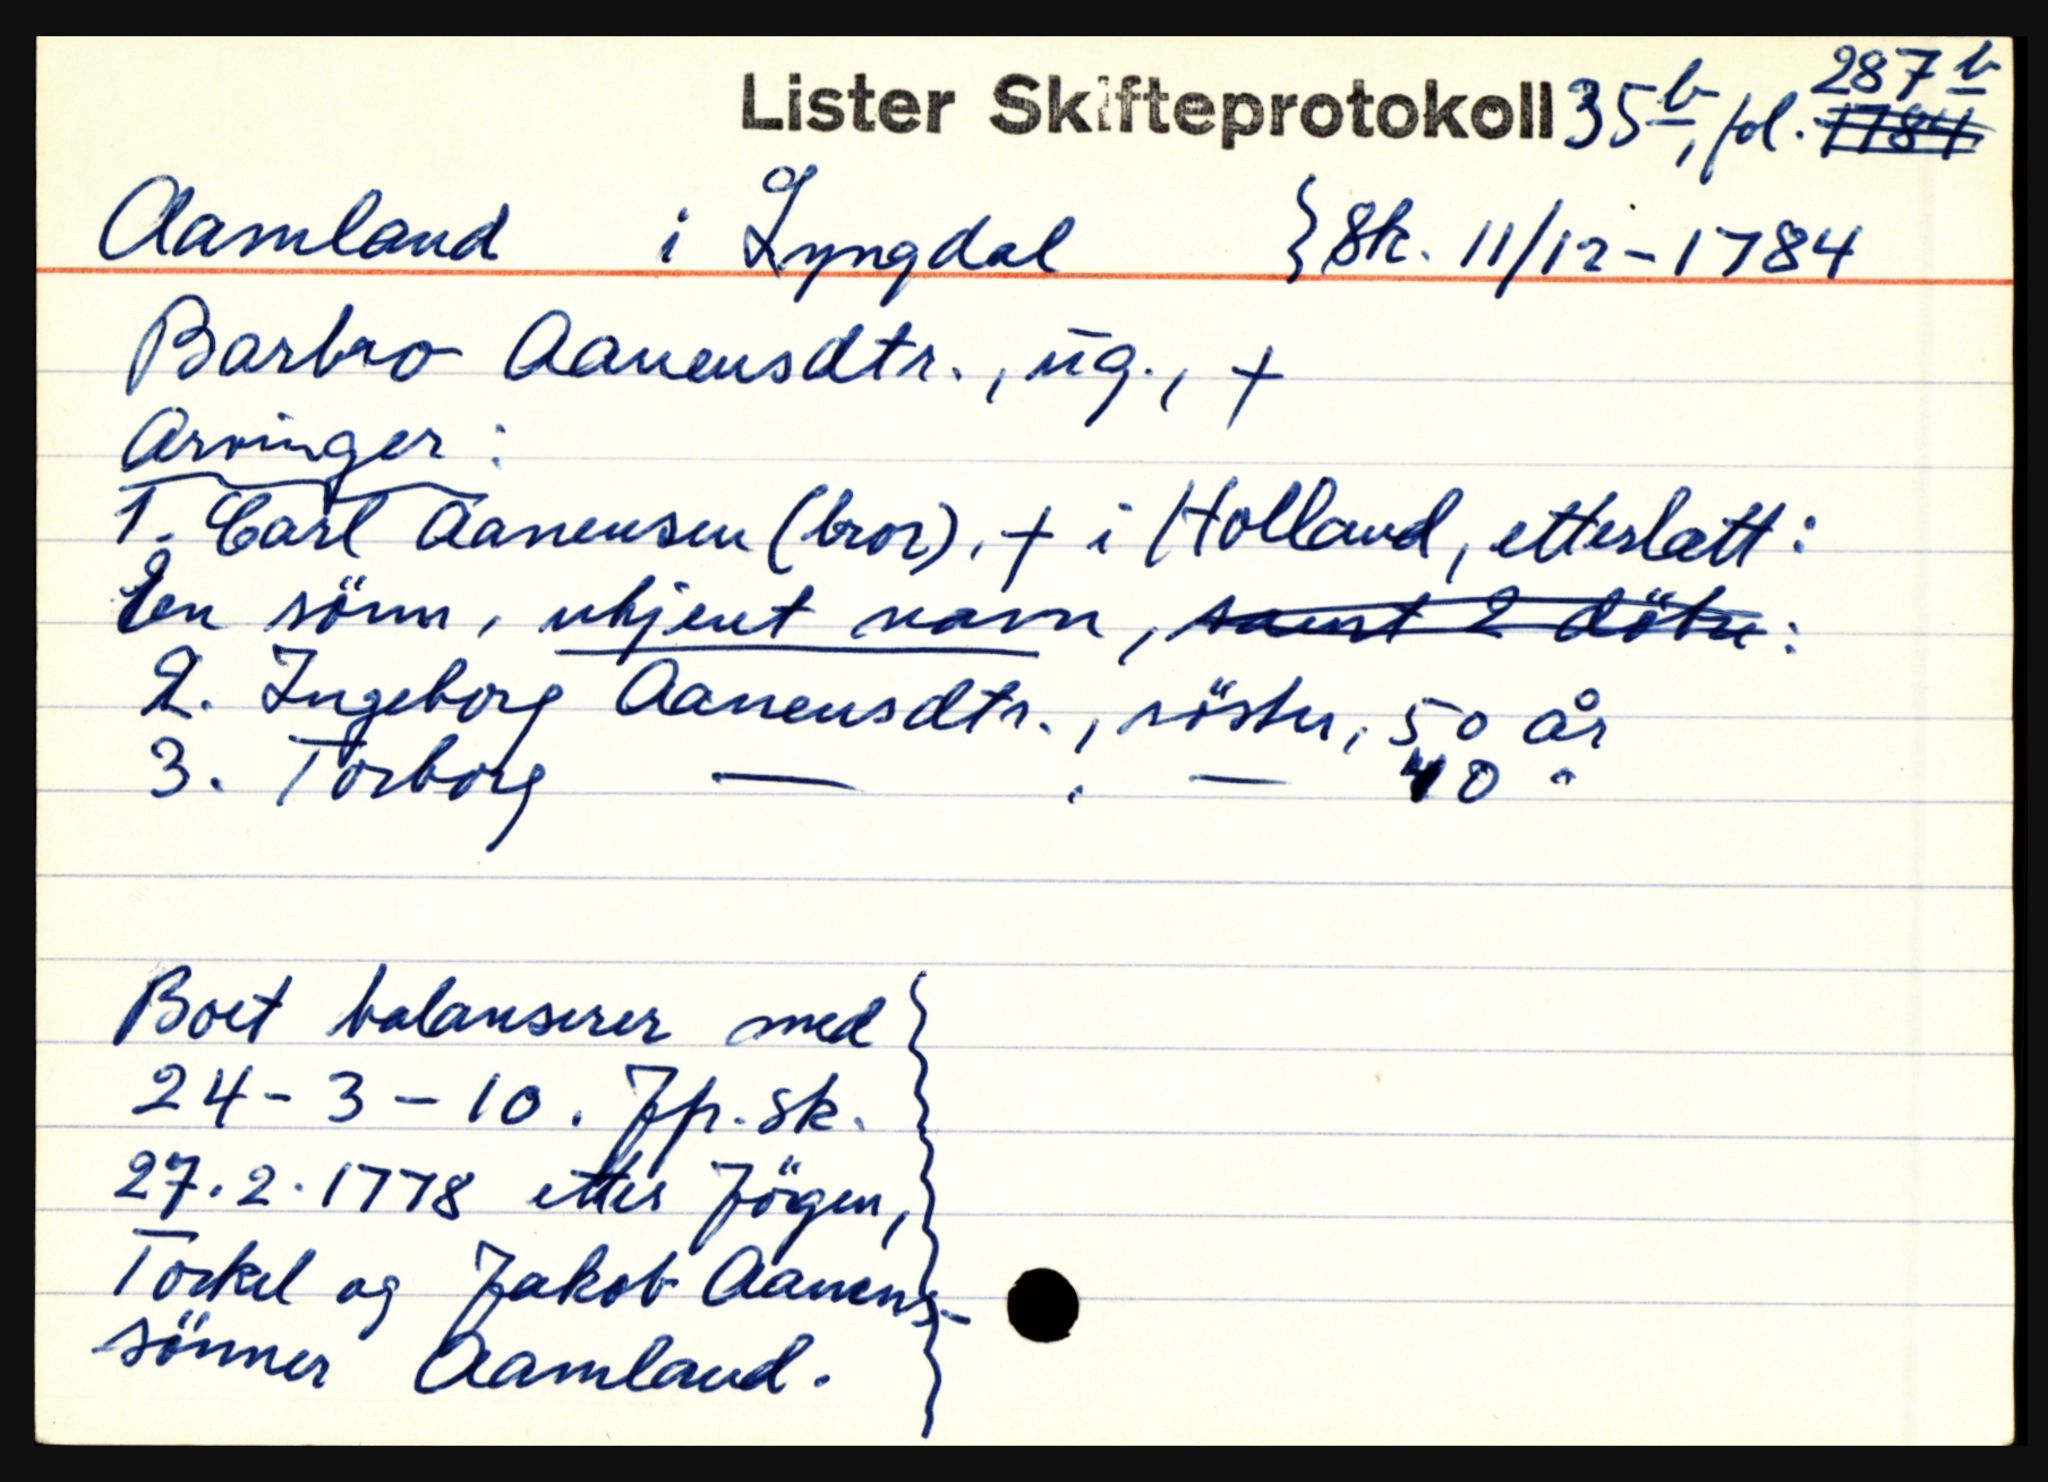 Lister Skifteprotokoll 35 b, fol. 287 b ~~1784~~
Aamland i Lyngdal } Sk. 11/12-1784
Barbro Aanensdtr., ug., +
Arvinger:
1. Carl Aanensen (bror), + i Holland, etterlatt:
En sönn, ukjent navn, ~~samt 2 dötre~~:
2. Ingeborg Aanensdtr., söster, 50 år
3. Torborg — , — 40 "
Boet balanserer med
24-3-10. Jfr. sk.
27.2.1778 etter Jörgen,
Torkel og Jakob Aanens-
sönner Aamland.